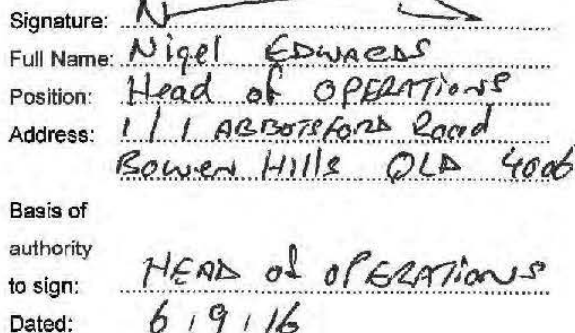 Signature:
Full Name: Nigel EDWARDS
Position: Head of OPERATIONS
Address: 1 / 1 ABBOTSFORD Road
Bowen Hills QLD 4006
Basis of
authority
to sign: HEAD of OPERATIONS
Dated: 6 / 9 / 16